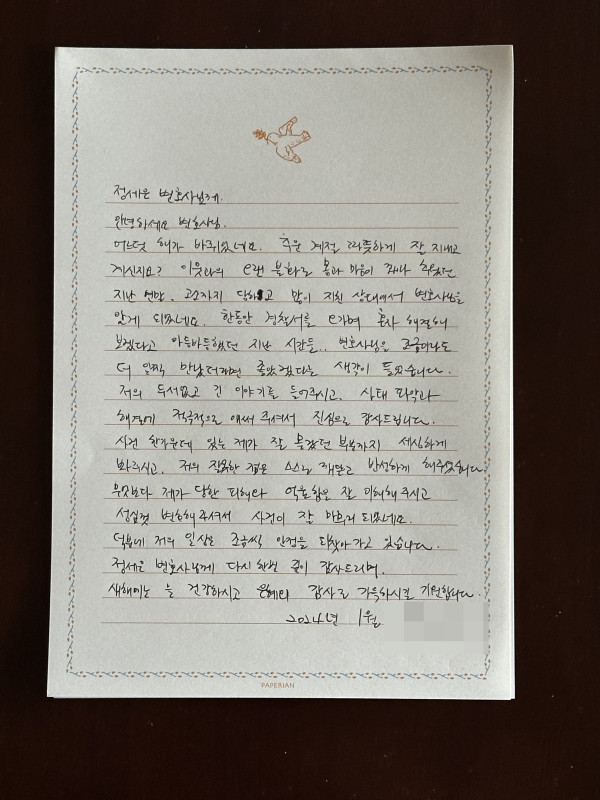 정세은 변호사님께.
안녕하세요 변호사님.
어느덧 해가 바뀌었네요. 추운 계절 따뜻하게 잘 지내고
계시지요? 이웃과의 오랜 불화로 몸과 마음이 추웠던
지난 연말. 고소까지 당하고 많이 지친 상태에서 변호사님을
알게 되었네요. 한동안 경찰서를 오가며 혼자 해결해
보겠다고 아등바등했던 지난 시간들.. 변호사님을 조금이라도
더 일찍 만났더라면 좋았겠다는 생각이 들었습니다.
저의 두서없고 긴 이야기를 들어주시고. 사태 파악과
해결에 적극적으로 애써 주셔서 진심으로 감사드립니다.
사건 한가운데 있는 제가 잘 몰랐던 부분까지 세심하게
봐주시고. 저의 잘못한 점은 스스로 깨닫고 반성하게 해주셨습니다.
무엇보다 제가 당한 피해와 억울함을 잘 이해해 주시고
성실껏 변호해주셔서 사건이 잘 마무리 되었네요.
덕분에 저의 일상은 조금씩 안정을 되찾아가고 있습니다.
정세은 변호사님께 다시 한번 깊이 감사드리며.
새해에는 늘 건강하시고 은혜와 감사로 가득하시길 기원합니다.
2024년 1월
PAPERIAN